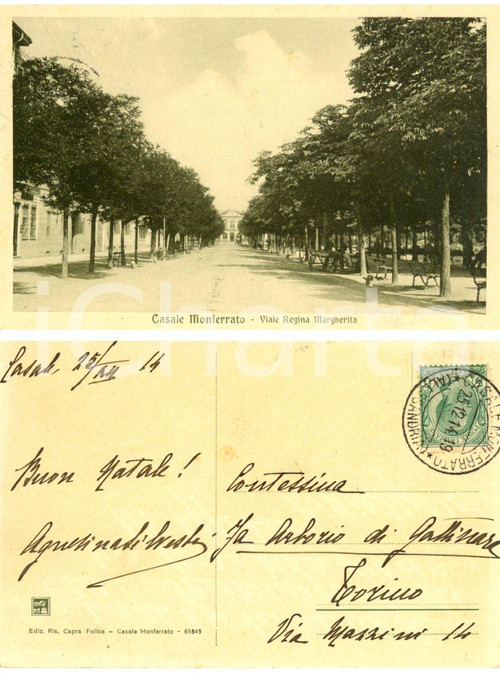 Casale Monferrato - Viale Regina Margherita
Casale, 25/XII 14
Buon Natale!
Contessina
Arborio di Gattinara
Torino
Via Mazzini 14
CASALE MONFERRATO
(ALESSANDRIA)
25.12.14.19
Ediz. Ris. Capra Felice - Casale Monferrato - 65849